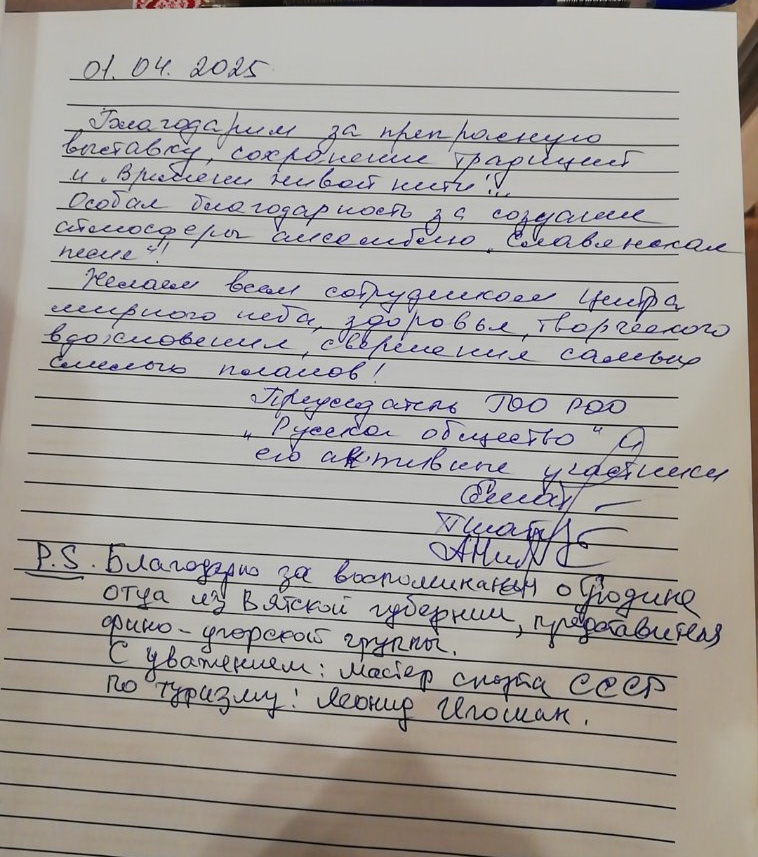 01.04.2025
Благодарим за прекрасную
выставку, сохранение традиций
и "Времени живой нити"!
Особая благодарность за создание
атмосферы ансамблю "Славянская
песня"!
Желаем всем сотрудникам Центра
мирного неба, здоровья, творческого
вдохновения, свершения самых
смелых планов!
Председатель ТОО РОО
"Русское общество" и
его активные участники
P.S. Благодарю за воспоминания о Родине
отца из Вятской губернии, представителя
фино-угорской группы.
С уважением: мастер спорта СССР
по туризму: Леонид Игошин.